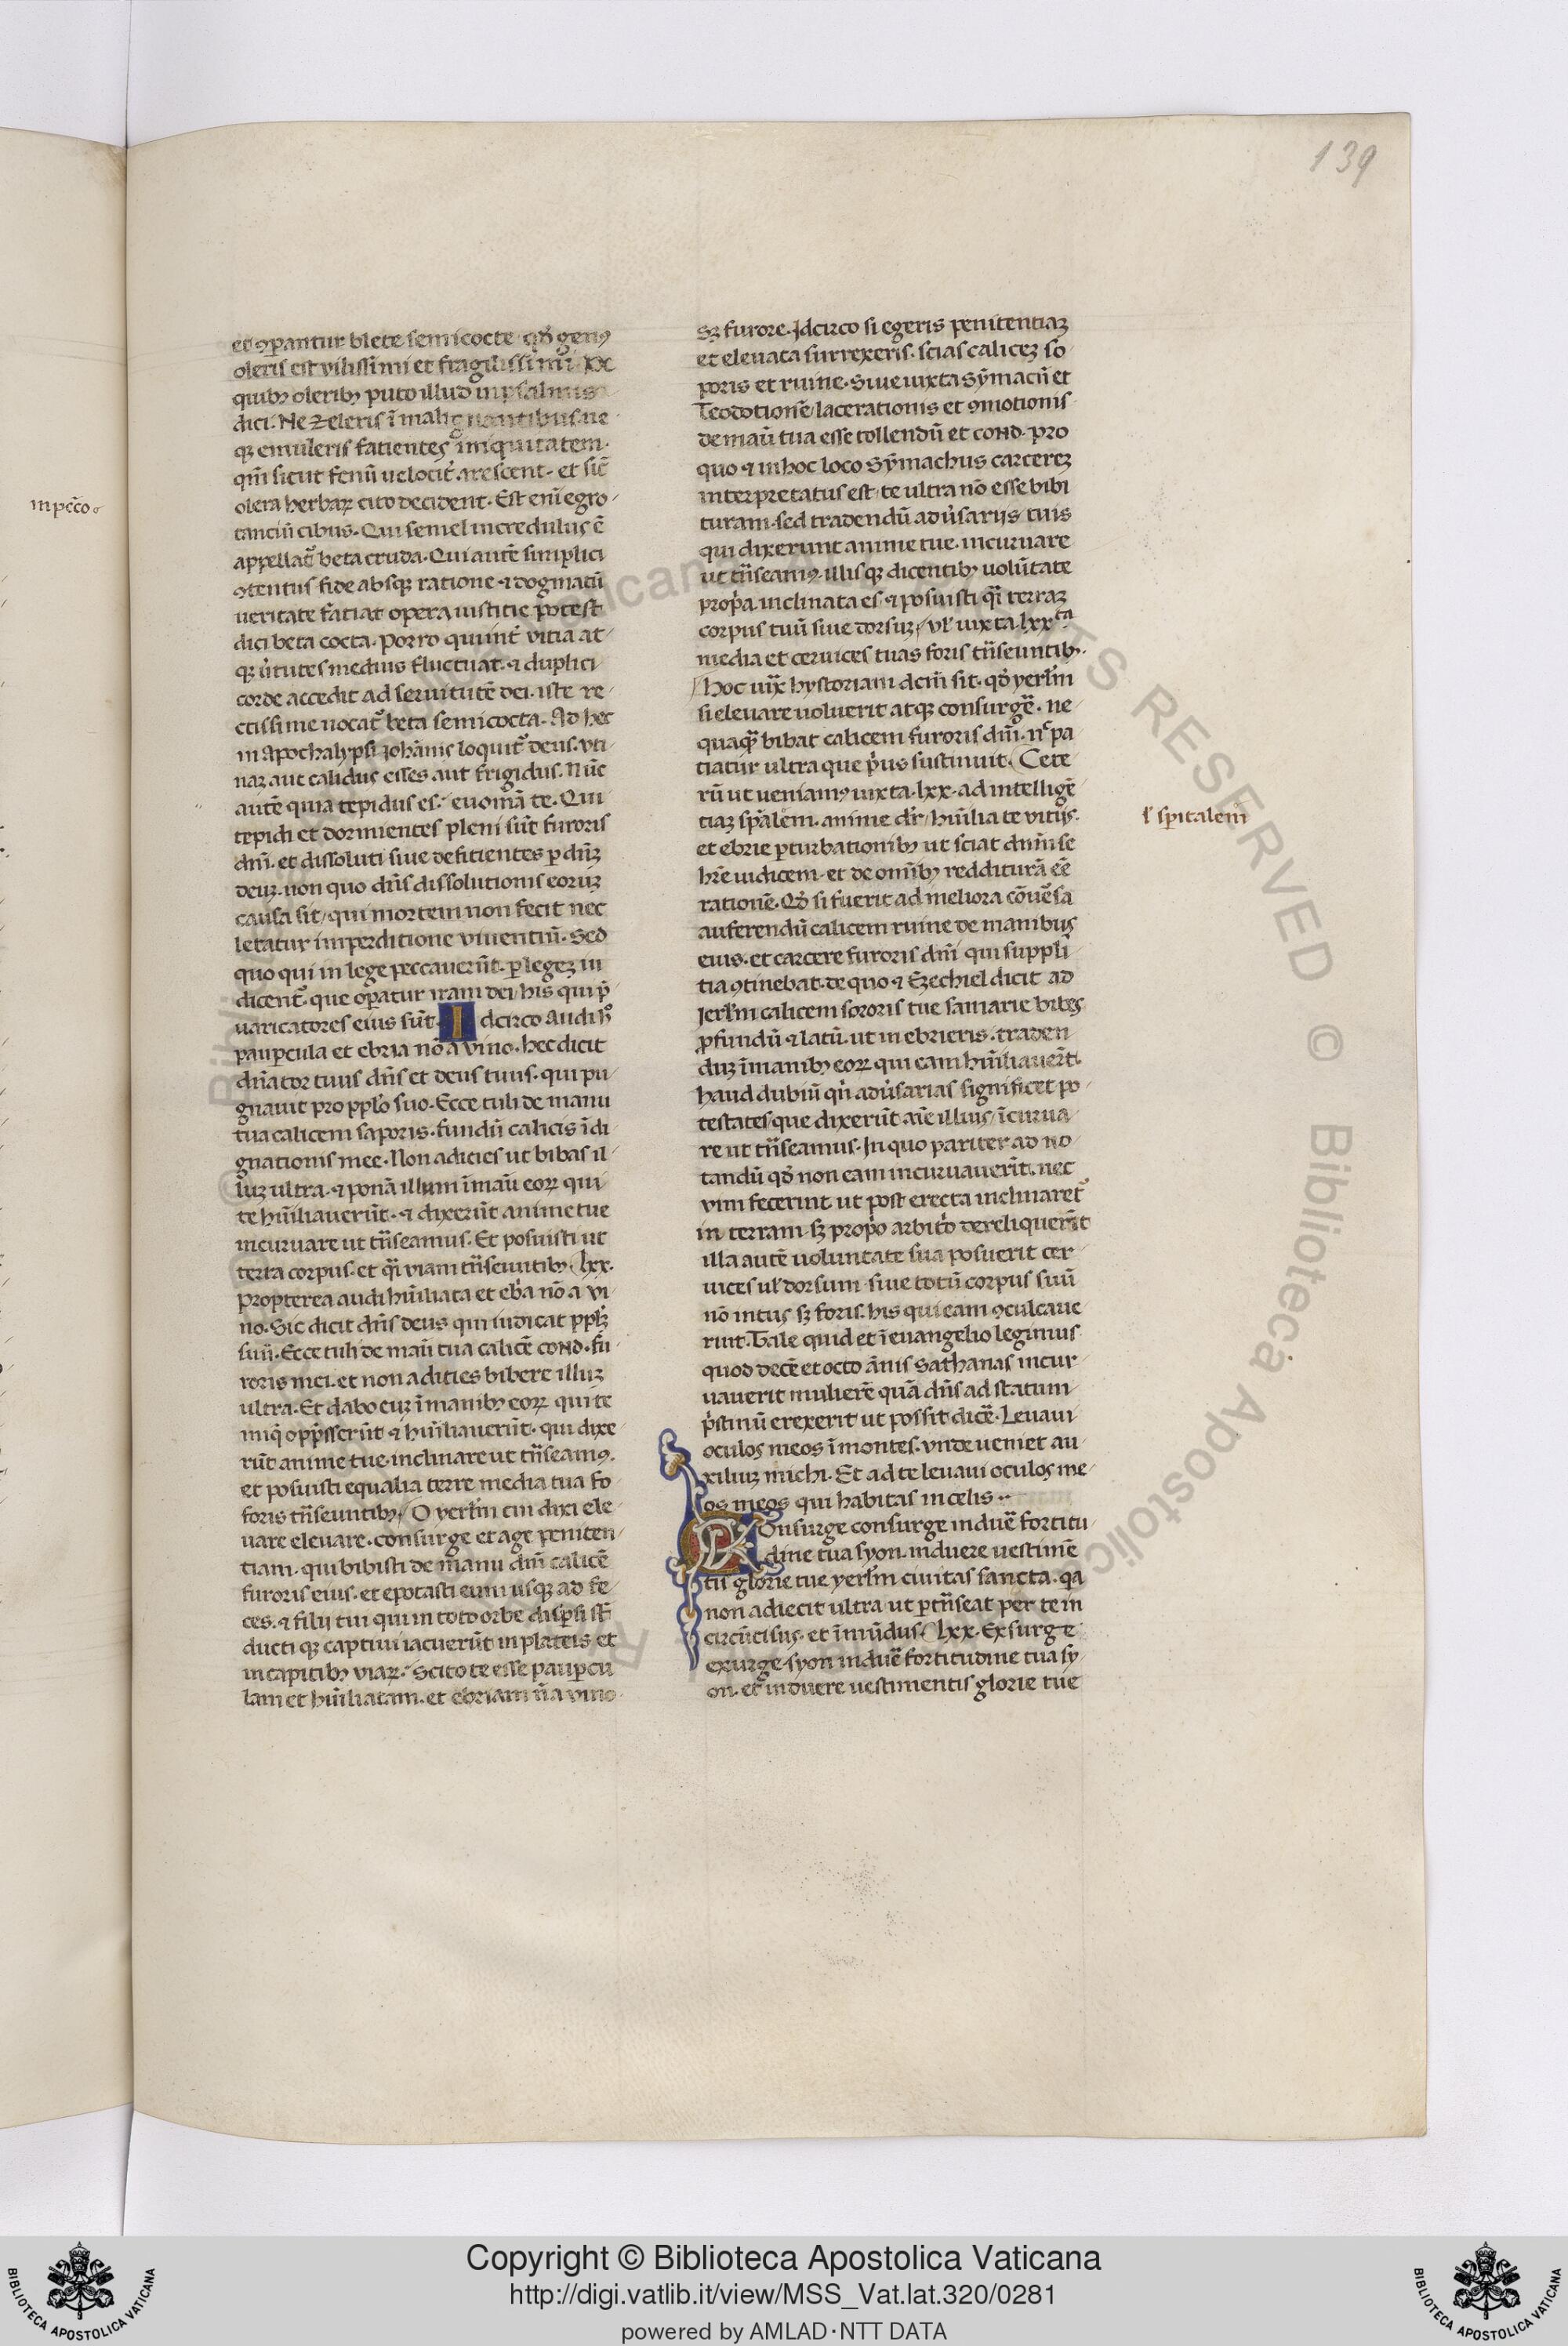 139
et ꝯparantur blete semicocte qđ gen⁹
oleris est vilissimi et fragilissimi. Ex
quibꝫ oleribꝫ puto illud in psalmis
dici. Ne zeleris ī malignantibus ne
qꝫ emuleris fatientes iniquitatem.
qm̄ sicut fenū velociť arescent. et sič
olera herbaꝝ cito decident. Est enī egro
tanciū cibus. Qui semel incredulus ē
appellať beta cruda. Qui autē simplici
ꝯtentus fide absqꝫ ratione ⁊ dogmatū
veritate fatiat opera iustitie potest
dici beta cocta. Porro qui inť vitia at
qꝫ v̉tutes medius fluctuat. ⁊ duplici
corde accedit ad seruitutē dei. iste re
ctissime uocať beta semicocta. Ad hec
in Apochalypsi Johānis loquiť deus. vti
naꝫ aut calidus esses aut frigidus. Nūc
autē quia tepidus es. euomā te. Qui
tepidi et dormientes pleni sūt furoris
dn̄i. et dissoluti siue defitientes ꝑ dn̄ꝫ
deuꝫ. non quo dn̄s dissolutionis eoruꝫ
causa sit, qui mortem non fecit nec
letatur imperditione viuentiū. Sed
quo qui in lege peccauerūt. ꝑ legeꝫ iu
dicenť. que oꝑatur iram dei, his qui p̄
uaricatores eius sūt. Idcirco Audi h̊
pauꝑcula et ebria nō a vino. hec dicit
dn̄ator tuus dn̄s et deus tuus. qui pu
gnauit pro pplo suo. Ecce tuli de manu
tua calicem saporis. fundū calicis īdi
gnationis mee. Non adicies ut bibas il
luꝫ ultra. ⁊ ponā illum ī manū eoꝝ qui
te hūiliauerūt. ⁊ dixerūt anime tue
incuruare ut trāseamus. Et posuisti ut
terra corpus. et qᷓi viam trāseuntibꝫ lxx.
Propterea audi hūiliata et ebria nō a vi
no. Sic dicit dn̄s deus qui iudicat pplꝫ
suū. Ecce tuli de manū tua calicē coɴd. fu
roris mei. et non adities bibere illuꝫ
ultra. Et dabo euꝫ ī manibꝫ eoꝝ qui te
iniq̇ opp̄sserūt ⁊ hūiliauerūt. qui dixe
rūt anime tue. inclinare ut trāseam⁹.
et posuisti equalia terre media tua fo
foris trāseuntibꝫ. O yerl̄m cui dixi ele
uare eleuare. consurge et age peniten
tiam. qui bibisti de manu dn̄i calicē
furoris eius. et epotasti eum usqꝫ ad fe
ces. ⁊ filii tui qui in toto orbe disꝑsi st̄
ducti qꝫ captiui iacuerūt in plateis et
in capitibꝫ viaꝝ. Scito te esse pauꝑcu
lam et hūiliatam. et ebriam n̄ a vino
sꝫ furore. Jdcirco si egeris penitentiaꝫ
et eleuata surrexeris. scias caliceꝫ so
poris et ruine. Siue iuxta Sȳmacū et
Teodotionē lacerationis et ꝯmotionis
de manū tua esse tollendū et coɴd. pro
quo ⁊ in hoc loco Sȳmachus carcereꝫ
interpretatus est. te ultra nō esse bibi
turam. sed tradendū adu̓sariis tuis
qui dixerunt anime tue. incuruare
ut trāseam⁹. illisqꝫ dicentibꝫ uolūtate
propͥa inclinata es. ⁊ posuisti qᷓi terraꝫ
corpus tuū siue dorsuꝫ. vł iuxta lxxᵗᵃ
media et ceruices tuas foris trāseuntibꝫ.
Hoc iux̄ hystoriam dictū sit. qđ yerl̄m
si eleuare uoluerit atqꝫ consurgē. ne
quaqꝫ bibat calicem furoris dn̄i. nͨ pa
tiatur ultra que pͥus sustinuit. Cete
rū ut ueniam⁹ iuxta. lxx. ad intelligē
tiaꝫ sp̄alem. anime dr̄, hūilia te vitiis.
et ebrie ꝑturbationibꝫ ut sciat dn̄m se
hr̄e iudicem. et de oīnibꝫ reddituraṁ eē
rationē. Qđ si fuerit ad meliora cōuersa
auferendū calicem ruine de manibus
eius. et carcere furoris dn̄i qui suppli
tia ꝯtinebat. de quo ⁊ Ezechiel dicit ad
Jerl̄m calicem sororis tue samarie bibes
ꝓfundū ⁊ latū. ut in ebrieris. traden
duꝫ ī manibꝫ eoꝝ qui eam hūiliauerūt.
haud dubiū qͥn adu̓sarias significet po
testates que dixerūt aīe illius, īcurua
re ut trāseamus. In quo pariter ad no
tandū qđ non eam incuruauerit. nec
vim fecerint ut post erecta inclinareť
in terram. sꝫ propͥo arbitͥo dereliquerīt
illa autē uoluntate sua posuerit cer
uices uł dorsum. siue totū corpus suū
nō intus sꝫ foris. his qui eam ꝯculcaue
runt. Tale quid et ī euangelio legimus
quod decē et octo ānis Sathanas incur
uauerit mulierē quā dn̄s ad statum
pͥstinū erexerit ut possit dicē. Leuaui
oculos meos ī montes. vnde ueniet au
xiliuꝫ michi. Et ad te leuaui oculos me
os meos qui habitas in celis.
Consurge consurge induē fortitu
dine tua syon. induere uestimē
tis glorie tue yerl̄m ciuitas sancta. qa
non adiecit ultra ut ꝑtrāseat per te in
circūcisus. et īmūdus. lxx. Exsurge
exurge syon induē fortitudine tua sy
on. et induere uestimentis glorie tue
in pc̄co
ł spiritalem
Copyright © Biblioteca Apostolica Vaticana
http://digi.vatlib.it/view/MSS_Vat.lat.320/0281
powered by AMLAD·NTT DATA
BIBLIOTECA APOSTOLICA VATICANA
BIBLIOTECA APOSTOLICA VATICANA